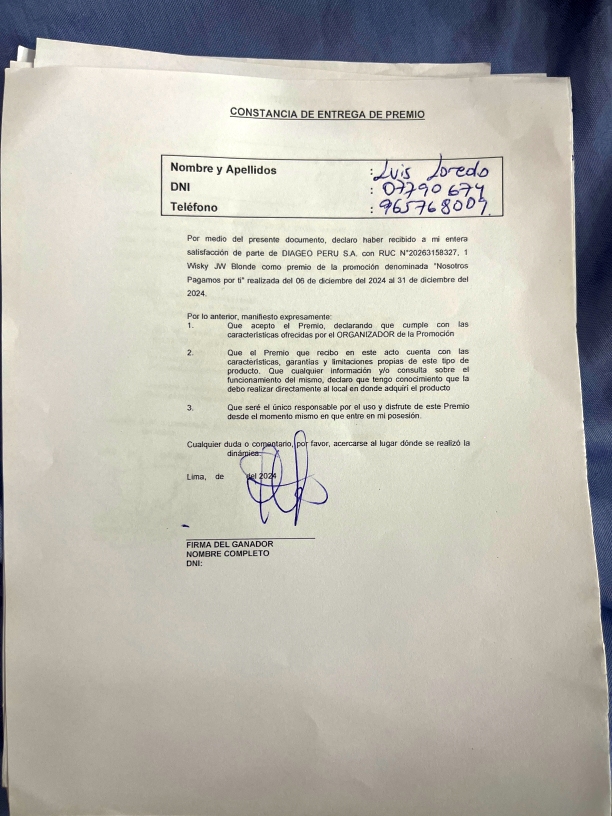 CONSTANCIA DE ENTREGA DE PREMIO
Nombre y Apellidos : Luis Loredo
DNI : 07790674
Teléfono : 965768007
Por medio del presente documento, declaro haber recibido a mi entera
satisfacción de parte de DIAGEO PERU S.A. con RUC N°20263158327, 1
Wisky JW Blonde como premio de la promoción denominada "Nosotros
Pagamos por ti" realizada del 06 de diciembre del 2024 al 31 de diciembre del
2024.
Por lo anterior, manifiesto expresamente:
1. Que acepto el Premio, declarando que cumple con las
características ofrecidas por el ORGANIZADOR de la Promoción
2. Que el Premio que recibo en este acto cuenta con las
características, garantías y limitaciones propias de este tipo de
producto. Que cualquier información y/o consulta sobre el
funcionamiento del mismo, declaro que tengo conocimiento que la
debo realizar directamente al local en donde adquirí el producto
3. Que seré el único responsable por el uso y disfrute de este Premio
desde el momento mismo en que entre en mi posesión.
Cualquier duda o comentario, por favor, acercarse al lugar dónde se realizó la
dinámica.
Lima, de del 2024
FIRMA DEL GANADOR
NOMBRE COMPLETO
DNI: